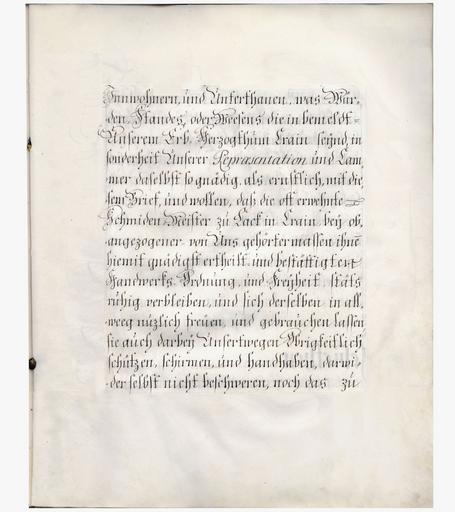 Innwohnern, und Unterthanen, was Wür-
den, Standes, oder Weesens die in bemeldt-
Unserem Erb-Herzogthum Crain seynd, in
sonderheit Unserer Repræsentation und Cam
mer daselbst so gnädig, als ernstlich, mit die,
sem Brief, und wollen, daß die oft erwehnte
Schmiden-Meister zu Lack in Crain bey ob,
angezogener von Uns gehörter massen ihnē
hiemit gnädigst ertheilt und bestättigtert
Handwerks Ordnung, und Freyheit stäts
ruhig verbleiben, und sich derselben in all,
weeg nüzlich freuen, und gebrauchen lassen
sie auch darbey Unsertwegen Obrigkeitlich
schützen, schirmen, und handhaben, darwi-
der selbst nicht beschweren, noch das zu